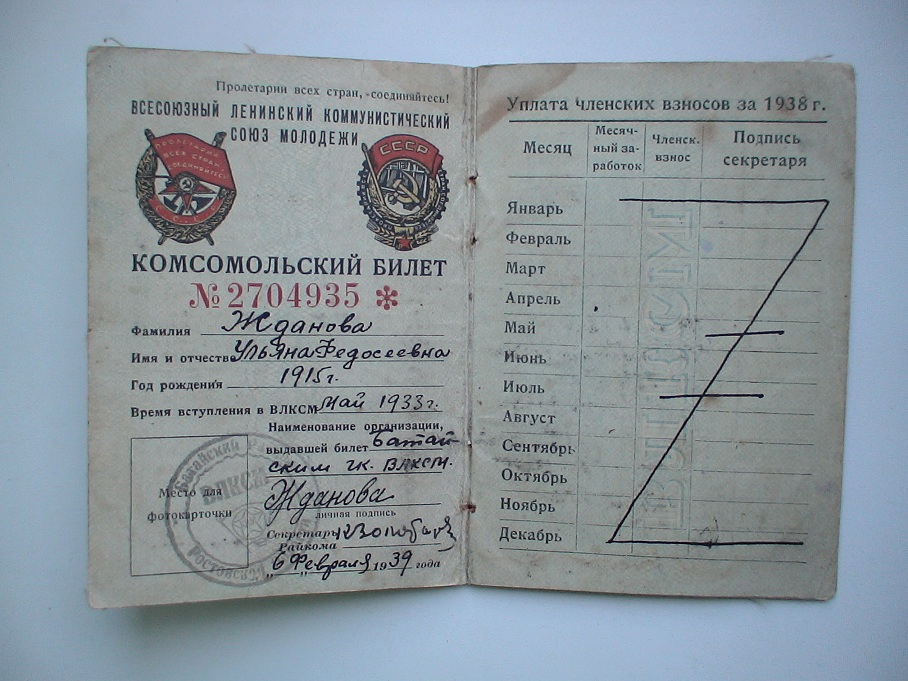 Пролетарии всех стран, соединяйтесь!
ВСЕСОЮЗНЫЙ ЛЕНИНСКИЙ КОММУНИСТИЧЕСКИЙ
СОЮЗ МОЛОДЕЖИ
ПРОЛЕТАРИИ
ВСЕХ СТРАН
СОЕДИНЯЙТЕСЬ
СССР
СССР
КОМСОМОЛЬСКИЙ БИЛЕТ
№ 2704935 *
Фамилия Жданова
Имя и отчество Ульяна Федосеевна
Год рождения 1915 г.
Время вступления в ВЛКСМ май 1933 г.
Наименование организации,
выдавшей билет Батай-
ским гк. ВЛКСМ.
Место для
фотокарточки
ВЛКСМ
Ростовской
Жданова
личная подпись
Секретарь
Райкома
"6" февраля 1939 года
Уплата членских взносов за 1938 г.
Месяц
Месяч-
ный за-
работок
Членск.
взнос
Подпись
секретаря
Январь
Февраль
Март
Апрель
Май
Июнь
Июль
Август
Сентябрь
Октябрь
Ноябрь
Декабрь